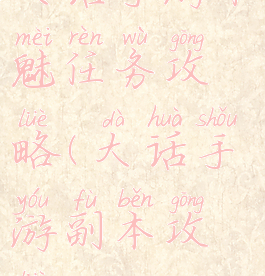 mèi rèn wù gōng
魅任务攻
lüè dà huà shǒu
略(大话手
yóu fu běn gōng
游副本攻